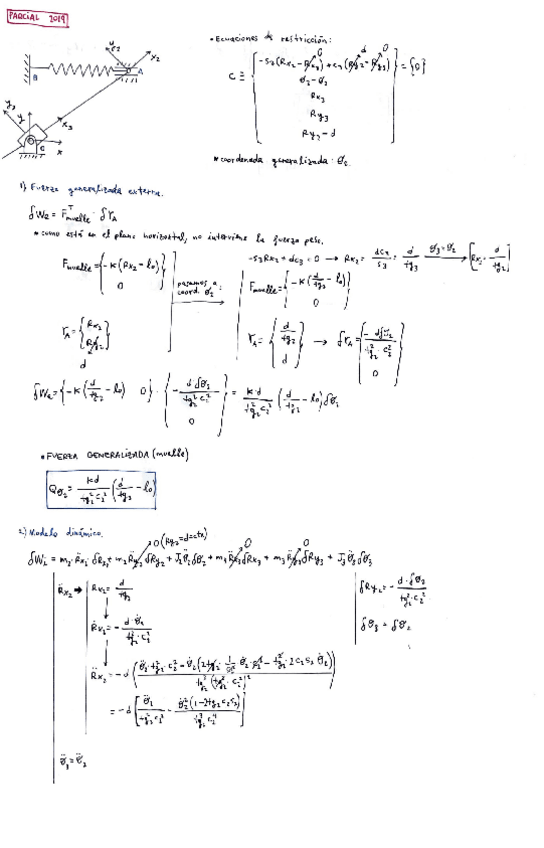 PARCIAL 2019
• Ecuaciones de restricción:
C ≡ { -s₃(Rx₂ - Rx₃) + c₃(Ry₂ - Ry₃)
θ₂ - θ₃
Rx₃
Ry₃
Ry₂ - d } = {0}
0 d 0
y₂ x₂
B A
y₃ y x₃
C x
* coordenada generalizada: θ₂
1) Fuerza generalizada externa.
δWe = Fᵀmuelle · δrA
* como está en el plano horizontal, no interviene la fuerza peso.
Fmuelle = { -K(Rx₂ - l₀)
0 }
pasamos a coord. θ₂
-s₃Rx₂ + dc₃ = 0 → Rx₂ = dc₃/s₃ = d/tg₃ θ₃=θ₂ → [Rx₂ = d/tg₂]
Fmuelle = { -K(d/tg₂ - l₀)
0 }
rA = { Rx₂
Ry₂ }
d
rA = { d/tg₂
d } → δrA = { - dδθ₂/tg₂²·c₂²
0 }
δWe = { -K(d/tg₂ - l₀) 0 } · { - d δθ₂/tg₂²c₂²
0 } = K·d/tg₂²c₂² (d/tg₂ - l₀)δθ₂
• FUERZA GENERALIZADA (muelle)
Qθ₂ = Kd/tg₂²c₂² (d/tg₂ - l₀)
2) Modelo dinámico.
0 (Ry₂=d=cte) 0 0
δWi = m₂·R̈x₂·δRx₂ + m₂R̈y₂δRy₂ + J₂θ̈₂δθ₂ + m₃R̈x₃δRx₃ + m₃R̈y₃δRy₃ + J₃θ̈₃δθ₃
R̈x₂ → Rx₂ = d/tg₂
δRx₂ = - d·δθ₂/tg₂²·c₂²
Ṙx₂ = - d·θ̇₂/tg₂²·c₂²
δθ₃ = δθ₂
= -d [ θ̈₂/tg₂²c₂² - θ̇₂²(1-2tg₂c₂s₂)/tg₂³c₂⁴ ]
θ̈₃ = θ̈₂